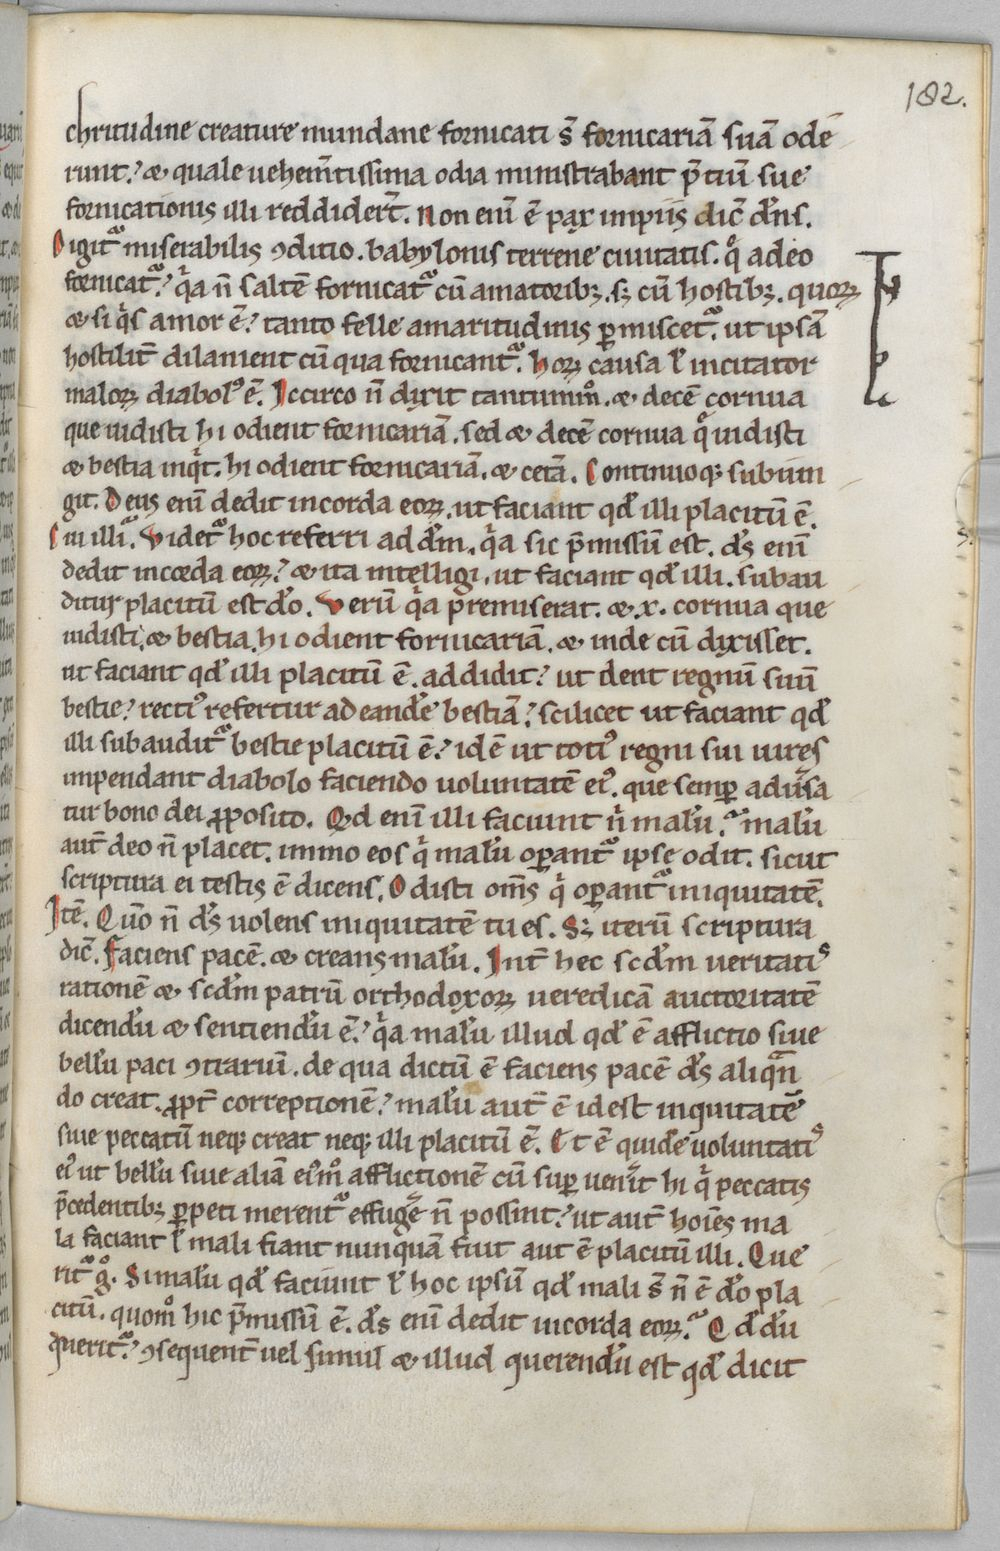 182.
chritudine creature mundane fornicati s̄ fornicariā suā odē
runt. ⁊ quale uehem̄tissima odia ministrabant p̄tiū sue
fornicationis illi reddider̄t. Non eni᷎ ē pax impiis dic̄ dn̄s.
Digitᷓ miserabilis ꝯditio. babylonis terrene ciuitatis. qͥ adeo
fornicatᷓ. qͥa n̄ saltē fornicatᷓ cū amatoribꝫ. sꝫ cū hostibꝫ. quoꝝ
⁊ si qͥs amor ē. tanto felle amaritudinis ꝑmiscetᷓ. ut ipsā
hostilit̄ dilanient cū qua fornicantᷓ. hoꝝ causa ł incitator
maloꝝ diabol᷒ ē. Iccirco n̄ dixit tantummͦ. ⁊ decē cornua
que uidisti hi odient fornicariā. sed ⁊ decē cornua qͥ uidisti
⁊ bestia inqͥt. hi odient fornicariā. ⁊ cetā. Continuoqꝫ subiun
git. Deus eni᷎ dedit in corda eoꝝ. ut faciant qd̄ illi placitū ē.
Cui illiᷓ. Videtᷓ hoc referri ad dm̄. qͥa sic p̄missū est. ds̄ enī
dedit in corda eoꝝ. ⁊ ita intelligi. ut faciant qd̄ illi. subau
ditur placitū est dō. Verū qͥa premiserat. ⁊ .x. cornua que
uidisti. ⁊ bestia. hi odient fornicariā. ⁊ inde cū dixisset.
ut faciant qd̄ illi placitū ē. addidit. ut dent regnū suū
bestie. recti᷒ refertur ad eandē bestiā. scilicet ut faciant qd̄
illi subauditᷓ bestie placitū ē. idē ut toti᷒ regni sui uires
impendant diabolo faciendo uoluntatē ei᷒. que semꝑ adūsa
tur bono dei ꝓposito. Qd enī illi faciunt n̄ malū.ᷓ malū
aut̄ deo n̄ placet. immo eos qͥ malū oꝑantᷓ ipse odit. sicut
scriptura ei testis ē dicens. Odisti om̄s qͥ oꝑantᷓ iniquitatē.
Itē. Quō n̄ ds̄ uolens iniquitatē tu es. Sꝫ iterū scriptura
dic̄. Faciens pacē. ⁊ creans malū. Int̄ hec scdm̄ ueritatis
rationē ⁊ scdm̄ patrū orthodoxoꝝ ueredicā auctoritatē
dicendū ⁊ sentiendū ē. qͥa malū illud qd̄ ē afflictio siue
bellū paci ꝯtrariū. de qua dictū ē faciens pacē ds̄ aliqᷓn
do creat. ꝓpt̄ correptionē. malū aut̄ ē id est iniquitatē
siue peccatū neqꝫ creat neqꝫ illi placitū ē. Et ē quidē uoluntatis
ei᷒ ut bellū siue aliā ei᷒mͦ afflictionē cū suꝑ uenit̄ hi qͥ peccatis
p̄cedentibꝫ ꝑpeti merentᷓ effuge᷑ n̄ possint. ut aut̄ hoīes ma
la faciant ł mali fiant nunquā fuit aut ē placitū illi. Que
ritᷓ gͦ. Si malū qd̄ faciunt ł hoc ipsū qd̄ mali s̄ n̄ ē dō pla
citū. quomͦ hic p̄missū ē. ds̄ enī dedit in corda eoꝝ.ᷓ Qd dū
queritᷓ. ꝯsequent̄ uel simul ⁊ illud querendū est qd̄ dicit